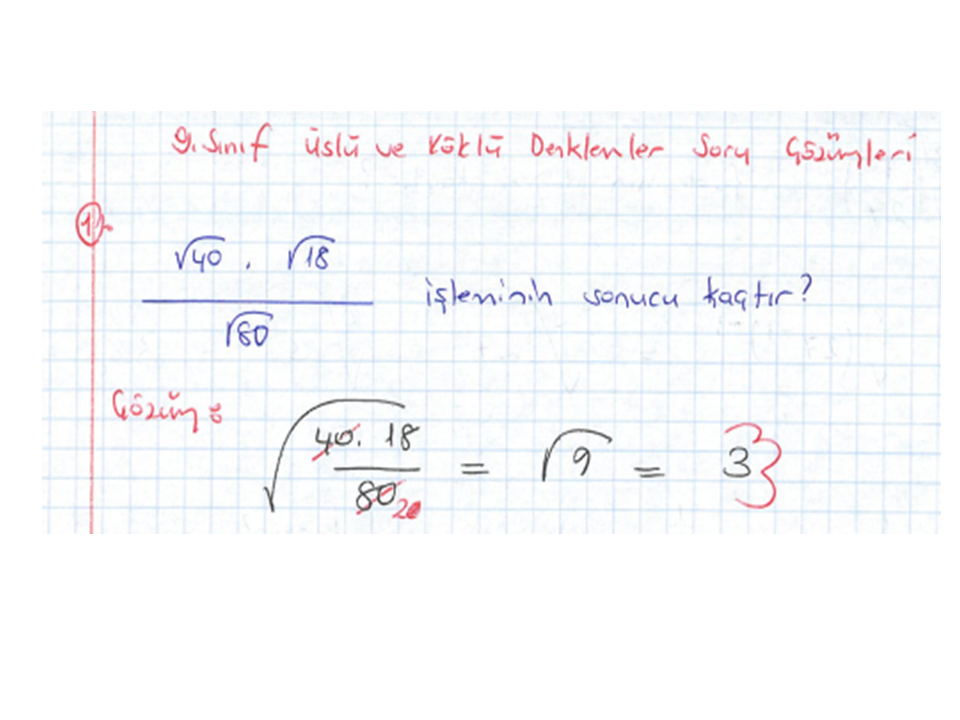 9. Sınıf üslü ve köklü Denklemler Soru Çözümleri
1)
√40 . √18
√80
işleminin sonucu kaçtır?
Çözüm :
√ 40. 18 = √9 = 3
80 2